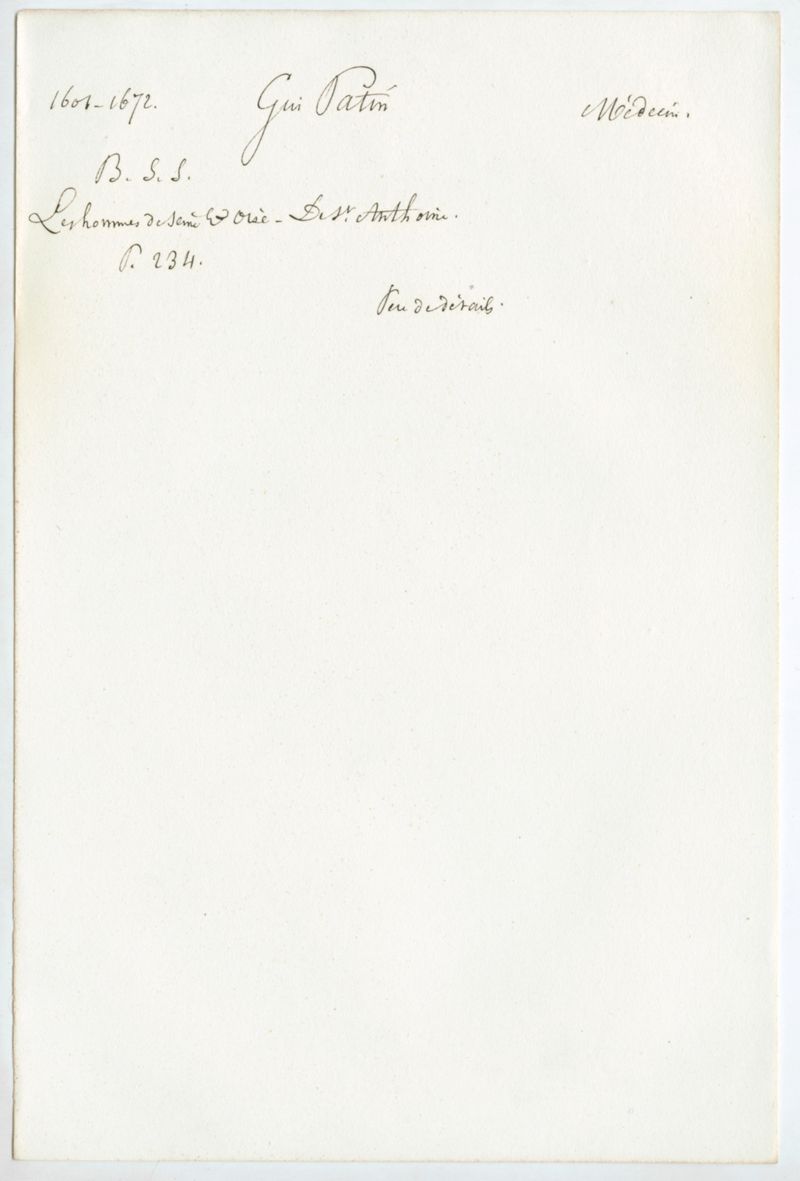 1601-1672. Gui Patin Médecin.
B. S. S.
Les hommes de Seine & Oise - De St. Anthoine.
P. 234.
Peu de détails.